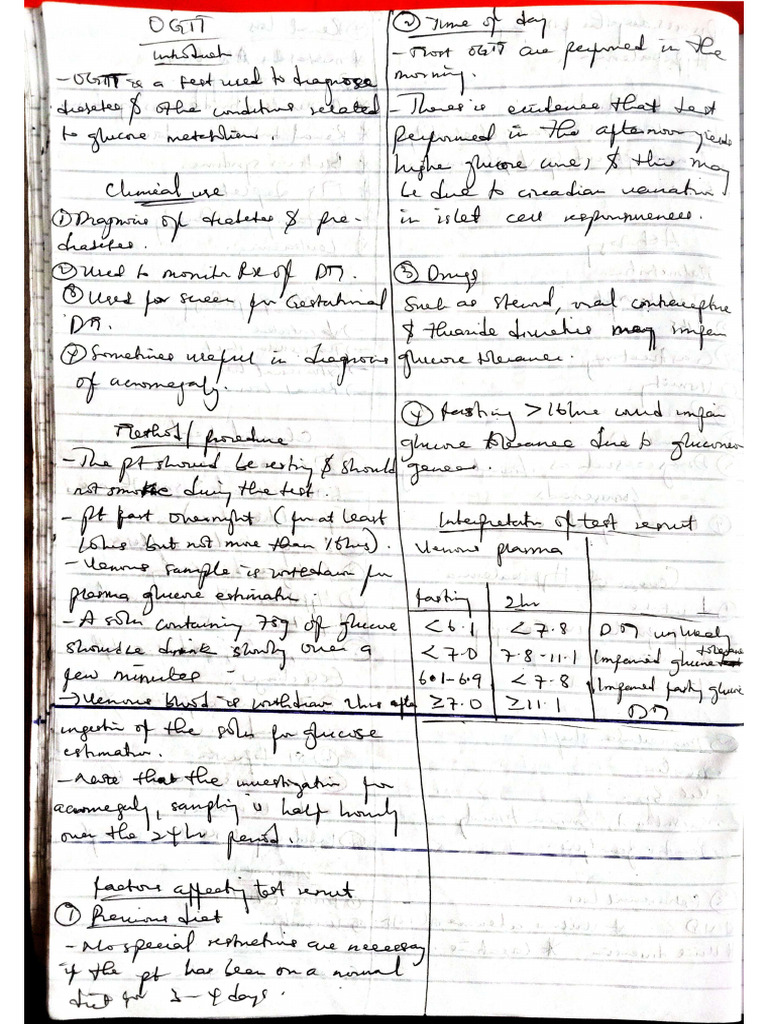 OGTT
Introduct
- OGTT is a test used to diagnose
diabetes & other conditions related
to glucose metabolism.
Clinical use
① Diagnosis of diabetes & pre-
diabetes.
② Used to monitor Rx of DM.
③ Used for screen for Gestational
DM.
④ Sometimes useful in diagnosis
of acromegaly.
Method/procedure
- The pt should be resting & should
not smoke during the test.
- pt fast overnight (for at least
10hrs but not more than 16hrs).
- Venous sample is withdrawn for
plasma glucose estimation.
- A soln containing 75g of glucose
should be drink slowly over a
few minutes
→ Venous blood is withdrawn 2hrs after
ingestion of the soln for glucose
estimation.
- Note that the investigation for
acromegaly, sampling is half hourly
over the 24hr period.
Factors affecting test result
① Previous diet
- No special restrictions are necessary
if the pt has been on a normal
diet for 3-4 days.
② Time of day
- Most OGTT are performed in the
morning.
- There is evidence that test
performed in the afternoon yields
higher glucose & this may
be due to circadian variation
in islet cell responsiveness.
③ Drugs
Such as steroid, oral contraceptive
& thiazide diuretics may impair
glucose tolerance.
④ fasting >16hrs could impair
glucose tolerance due to gluconeo
genesis.
Interpretation of test result
Venous plasma
fasting | 2hr | I
<6.1 | <7.8 | DM unlikely
<7.0 | 7.8-11.1 | Impaired glucose tolerance
6.1-6.9 | <7.8 | Impaired fasting glucose
≥7.0 | ≥11.1 | DM